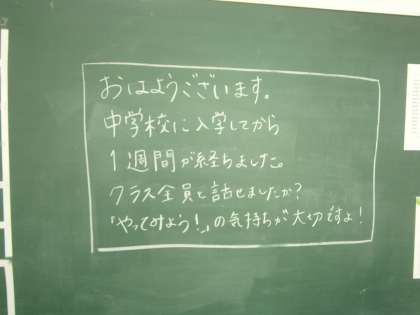 おはようございます。
中学校に入学してから
1週間が経ちました。
クラス全員と話せましたか?
「やってみよう!」の気持ちが大切ですよ!